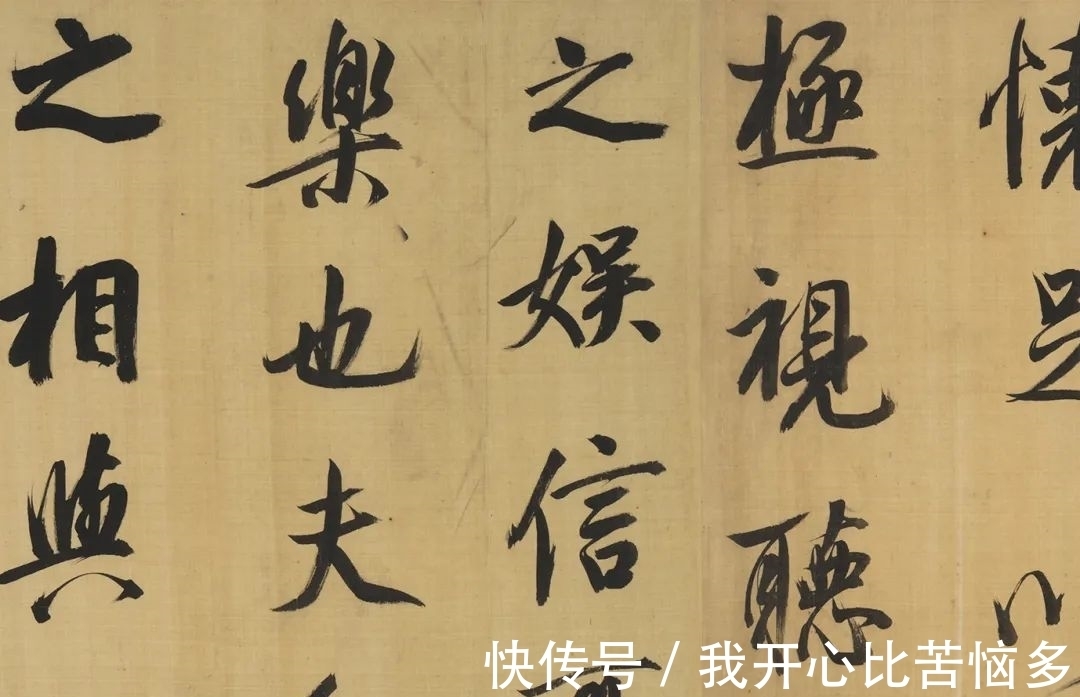 懷足以
極視聽
之娛信
樂也夫
之相與
快传号 / 我开心比苦恼多